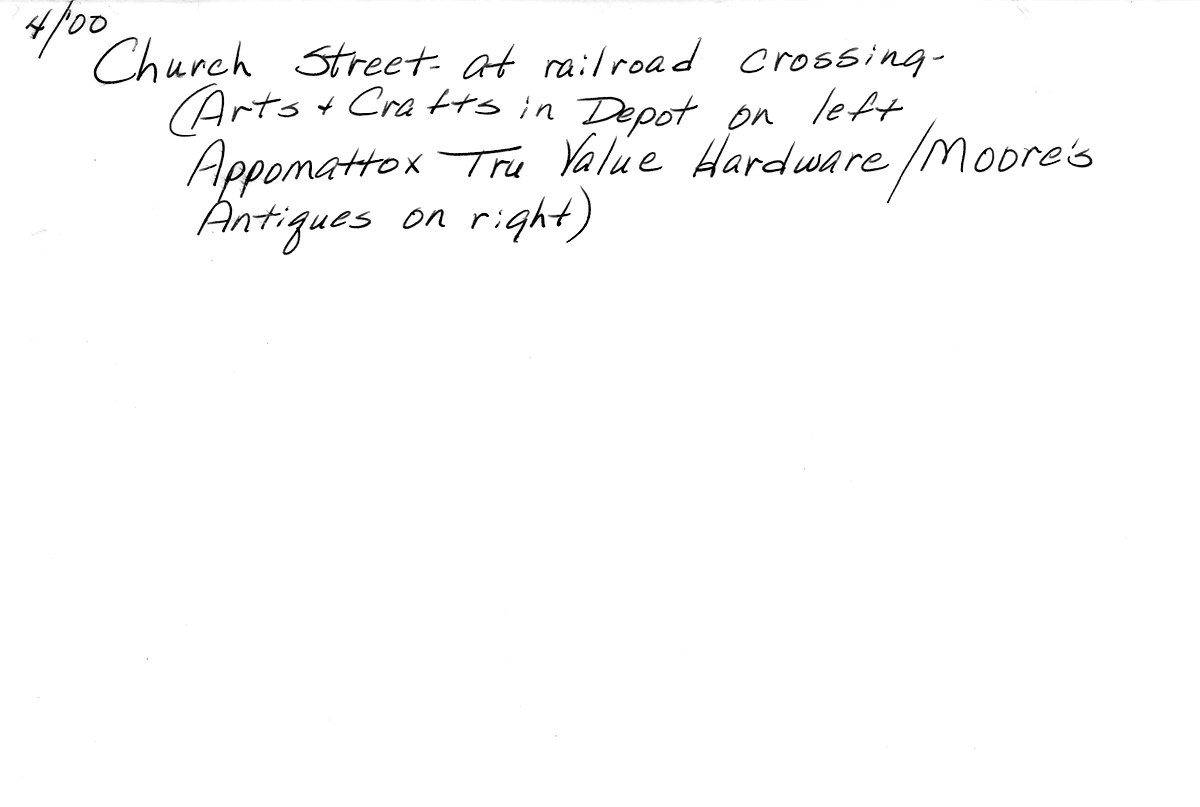 4/00
Church Street- at railroad crossing-
(Arts + Crafts in Depot on left
Appomattox Tru Value Hardware/Moore's
Antiques on right)